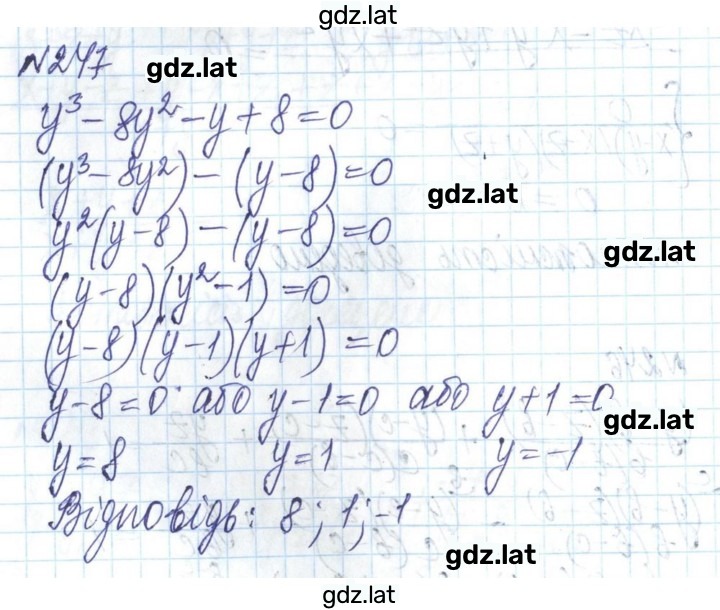 gdz.lat
№247 gdz.lat
y³ - 8y² - y + 8 = 0
(y³ - 8y²) - (y - 8) = 0
gdz.lat
y²(y - 8) - (y - 8) = 0
gdz.lat
(y - 8)(y² - 1) = 0
(y - 8)(y - 1)(y + 1) = 0
y - 8 = 0 або y - 1 = 0 або y + 1 = 0
gdz.lat
y = 8 y = 1 y = -1
Відповідь: 8; 1; -1
gdz.lat
gdz.lat